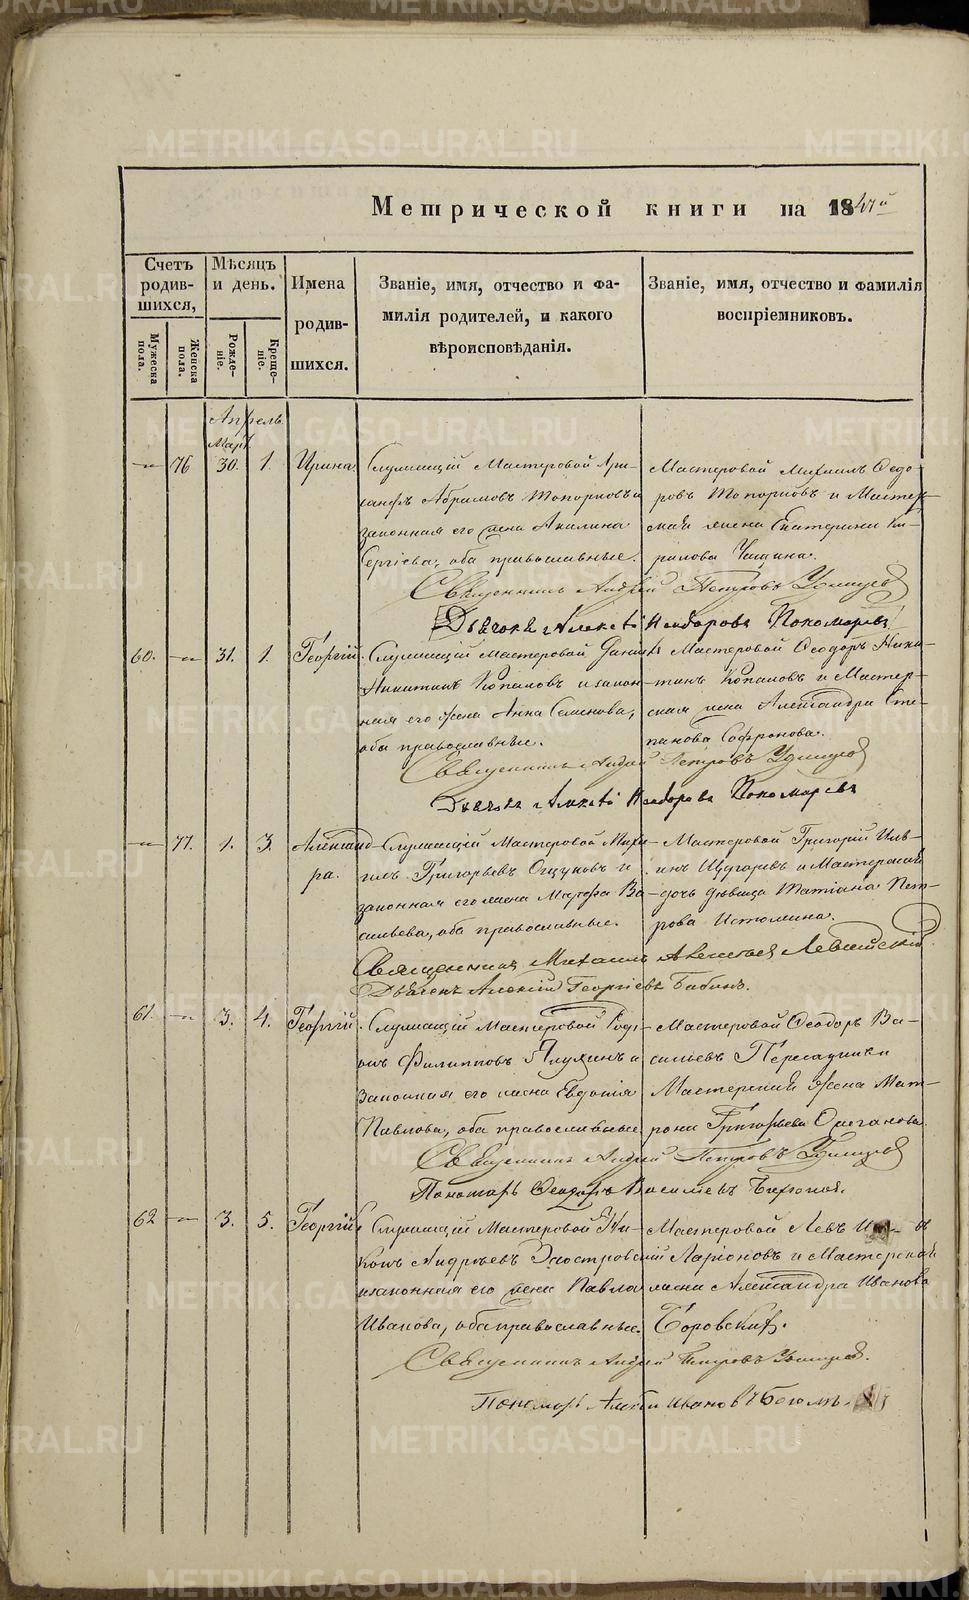 METRIKI.GASO-URAL.RU
Метрической книги на 18
Счетъ родив-шихся,
Мужеска пола.
Женска пола.
Мѣсяцъ и день.
Рожде-ніе.
Креще-ніе.
Имена родив-шихся.
Званіе, имя, отчество и фа-
милія родителей, и какого
вѣроисповѣданія.
Званіе, имя, отчество и фамилія
воспріемниковъ.
Апрель
Март
76 30. 1. Ирина
Служащій Мастеровой
Абрамовъ Топорковъ и
законная его жена Акилина
Сергіева, оба православные.
Мастеровой Михаилъ Федо-
ровъ Топорковъ и Мастер-
ская жена Екатерина Ки-
рилова
Священникъ Андрей Петровъ
Дьячекъ Алексѣй Феодоровъ Пономаревъ
60. 31. 1. Георгій.
Служащій Мастеровой Данилъ
Никитинъ Копаловъ и закон-
ная его жена Анна Семенова,
оба православные.
Мастеровой Феодоръ Ники-
тинъ Копаловъ и Мастер-
ская жена Александра Сте-
панова Софронова.
Священникъ Андрей Петровъ
Дьячекъ Алексѣй Феодоровъ Пономаревъ
77. 1. 3. Александ-
ра.
Служащій Мастеровой Миха-
илъ Григорьевъ и
законная его жена Марфа Ва-
сильева, оба православные.
Мастеровой Григорій Иль-
инъ и Мастерская
дочь дѣвица Татіана Пет-
рова Истомина.
Священникъ Михаилъ Левитскій
Дьячекъ Алексій Георгіевъ Бабинъ.
61. 3. 4. Георгій.
Служащій Мастеровой Роді-
онъ Филипповъ и
Законная его жена Евдокія
Павлова, оба православные
Мастеровой Феодоръ Ва-
сильевъ
Мастерская жена Мат-
рона Григорьева
Священникъ Андрей Петровъ
Пономарь Феодоръ Васильевъ
62 3. 5. Георгій
Служащій Мастеровой Ни-
конъ Андреевъ
и законная его жена Павла
Иванова, оба православные.
Мастеровой Левъ
Ларіоновъ и Мастерская
жена Александра Иванова
Боровскихъ.
Священникъ Андрей Петровъ
Пономарь Алексѣй Ивановъ